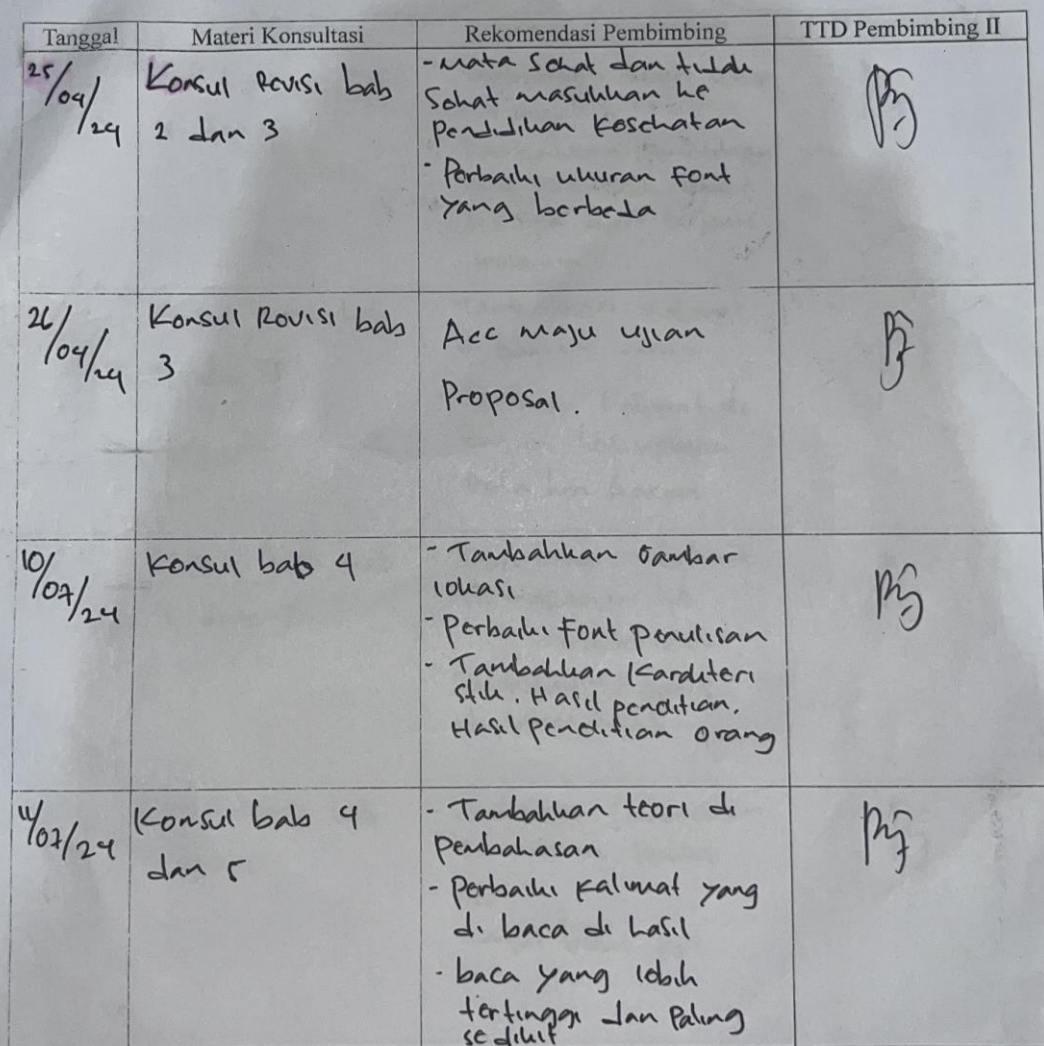 Tanggal Materi Konsultasi Rekomendasi Pembimbing TTD Pembimbing II
25/04/24
Konsul Revisi bab
2 dan 3
- mata Sehat dan tidak
Sehat masukkan ke
pendidikan Kesehatan
- Perbaiki ukuran font
yang berbeda
26/04/24
Konsul Revisi bab
3
Acc maju ujian
Proposal.
10/07/24
Konsul bab 4
- Tambahkan Gambar
lokasi
- Perbaiki Font penulisan
- Tambahkan Karakteri
stik. Hasil penelitian.
Hasil penelitian orang
11/07/24
Konsul bab 4
dan 5
- Tambahkan teori di
pembahasan
- Perbaiki Kalimat yang
di baca di hasil
- baca yang lebih
tertinggi dan Paling
sedikit